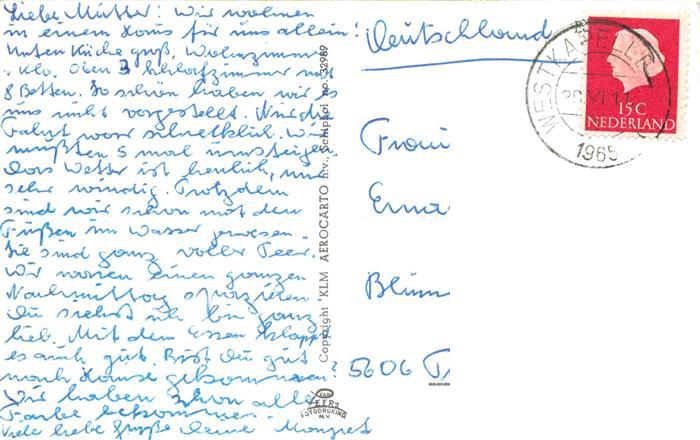 Liebe Mutter! Wir wohnen
in einem Haus für uns allein!
Unten Küche groß, Wohnzimmer
u. Klo. Oben 3 Schlafzimmer mit
8 Betten. So schön haben wir es
uns nicht vorgestellt. Nur die
Fahrt war schrecklich. Wir
mußten 5 mal umsteigen.
Das Wetter ist herrlich, nur
sehr windig. Trotzdem
sind wir schon mit den
Füßen im Wasser gewesen.
Sie sind ganz voller Teer.
Wir waren einen ganzen
Nachmittag spazieren
Du siehst ich bin ganz
lieb. Mit dem Essen klappt
es auch gut. Bist Du gut
nach Hause gekommen?
Wir haben schon alle
Farbe bekommen.
Viele liebe Grüße Deine Margret
Copyright KLM AEROCARTO n.v., Schiphol no. 32989
VAN
LEER'S
FOTODRUKIND
N.V.
Deutschland
Frau
Erna
Blum
5606 T
15C
NEDERLAND
WESTKAPELLE
1965